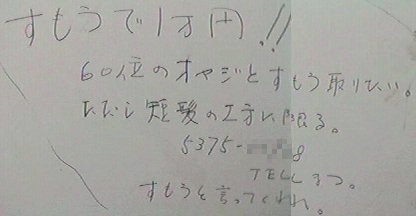 すもうで1万円!!
60位のオヤジとすもう取りたい。
ただし短髪の工方に限る。
5375-8
TELLまつ。
すもうと言ってくれ。